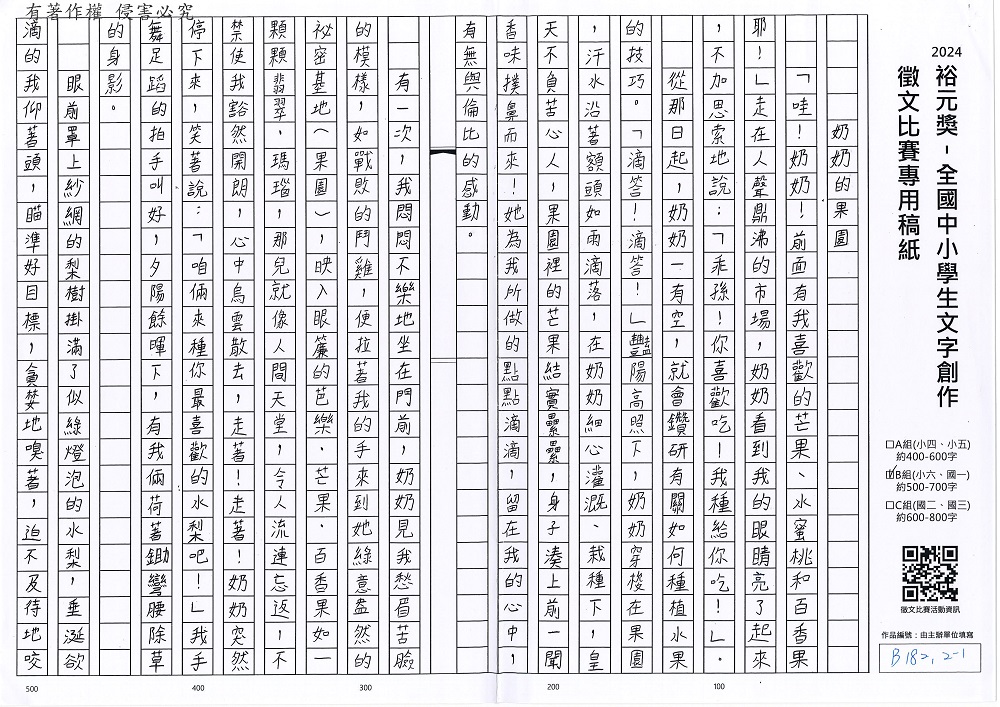 2024
裕元獎-全國中小學生文字創作
徵文比賽專用稿紙
□A組(小四、小五)
約400-600字
☑B組(小六、國一)
約500-700字
□C組(國二、國三)
約600-800字
徵文比賽活動資訊
作品編號:由主辦單位填寫
B182,2-1
有著作權 侵害必究
奶奶的果園
「哇!奶奶!前面有我喜歡的芒果、水蜜桃和百香果
耶!」走在人聲鼎沸的市場,奶奶看到我的眼睛亮了起來
,不加思索地說:「乖孫!你喜歡吃!我種給你吃!」.
從那日起,奶奶一有空,就會鑽研有關如何種植水果
的技巧。「滴答!滴答!」豔陽高照下,奶奶穿梭在果園
,汗水沿著額頭如雨滴落,在奶奶細心灌溉、栽種下,皇
天不負苦心人,果園裡的芒果結實纍纍,身子湊上前一聞
香味撲鼻而來!她為我所做的點點滴滴,留在我的心中,
有無與倫比的感動。
有一次,我悶悶不樂地坐在門前,奶奶見我愁眉苦臉
的模樣,如戰敗的鬥雞,便拉著我的手來到她綠意盎然的
祕密基地(果園),映入眼簾的芭樂.芒果.百香果如一
顆顆翡翠.瑪瑙,那兒就像人間天堂,令人流連忘返,不
禁使我豁然開朗,心中烏雲散去,走著!走著!奶奶突然
停下來,笑著說:「咱倆來種你最喜歡的水梨吧!」我手
舞足蹈的拍手叫好,夕陽餘暉下,有我倆荷著鋤彎腰除草
的身影。
眼前罩上紗網的梨樹掛滿了似綠燈泡的水梨,垂涎欲
滴的我仰著頭,瞄準好目標,貪婪地嗅著,迫不及待地咬
100
200
300
400
500